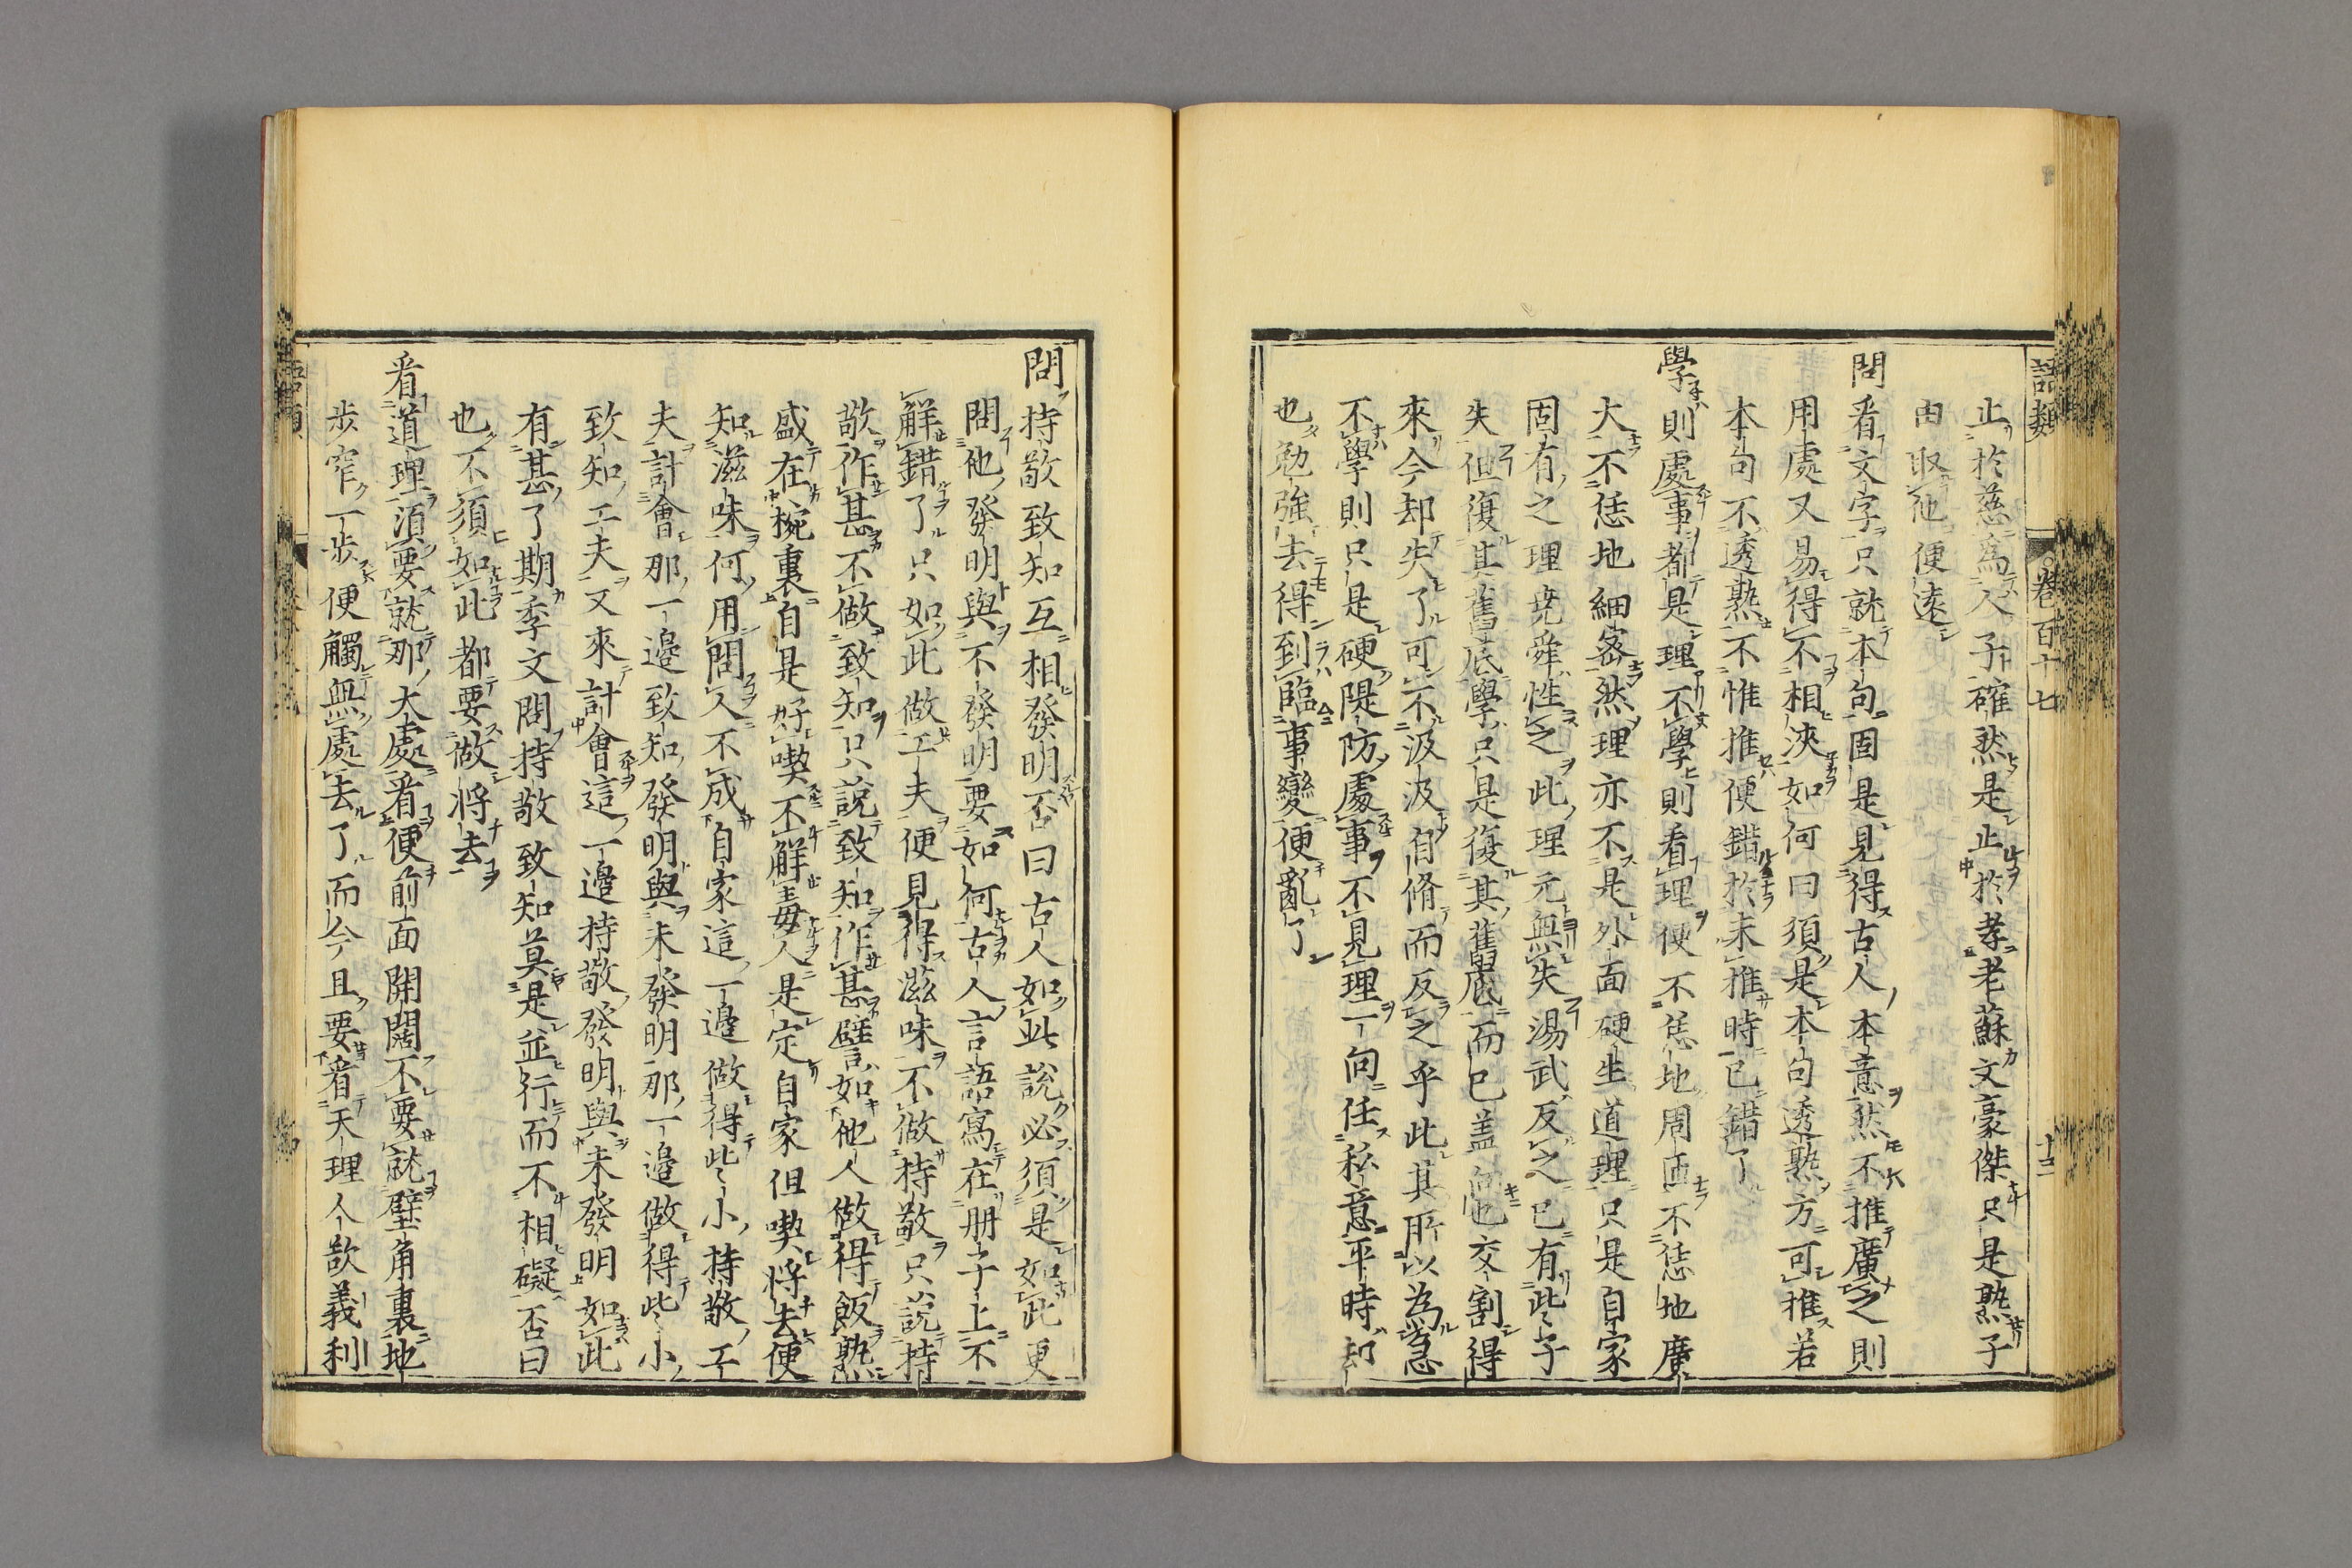 語類
卷百十七
十二
止於慈爲人子確然是止於孝老蘇文豪傑只是熟子
由取他便遠
問看文字只就本句固是見得古人本意然不推廣之則
用處又易得不相浹如何曰須是本句透熟方可推若
本句不透熟不惟推便錯於未推時已錯了
學則處事都是理不學則看理便不恁地周匝不恁地廣
大不恁地細密然理亦不是外面硬生道理只是自家
固有之理堯舜性之此理元無失湯武反之已有些子
失但復其舊底學只是復其舊底而已蓋向也交割得
來今却失了可不汲汲自脩而反之乎此其所以爲急
不學則只是硬隄防處事不見理一向任私意平時却
也勉強去得到臨事變便亂了
問持敬致知互相發明否曰古人如此說必須是如此更
問他發明與不發明要如何古人言語寫在册子上不
解錯了只如此做工夫便見得滋味不做持敬只說持
敬作甚不做致知只說致知作甚譬如他人做得飯熟
盛在椀裏自是好喫不解毒人是定自家但喫將去便
知滋味何用問人不成自家這一邊做得些小持敬工
夫計會那一邊致知發明與未發明那一邊做得些小
致知工夫又來計會這一邊持敬發明與未發明如此
有甚了期季文問持敬致知莫是並行而不相礙否曰
也不須如此都要做將去
看道理須要就那大處看便前面開闊不要就壁角裏地
步窄一步便觸無處去了而今且要看天理人欲義利
語類